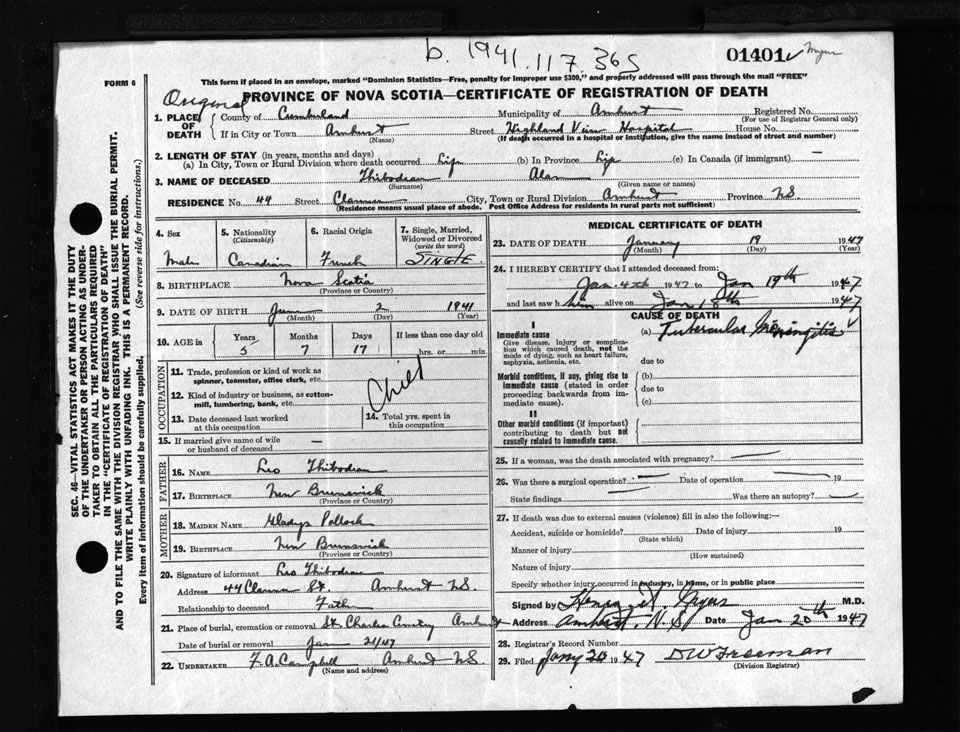 b. 1941.117.365
01401 ✓ Myers
FORM 6
This form if placed in an envelope, marked "Dominion Statistics—Free, penalty for improper use $300," and properly addressed will pass through the mail "FREE"
Original
PROVINCE OF NOVA SCOTIA—CERTIFICATE OF REGISTRATION OF DEATH
1. PLACE OF DEATH { County of Cumberland Municipality of Amherst Registered No.
(For use of Registrar General only)
If in City or Town Amherst Street Highland View Hospital House No.
(Name) (If death occurred in a hospital or institution, give the name instead of street and number)
2. LENGTH OF STAY (in years, months and days)
(a) In City, Town or Rural Division where death occurred Life (b) In Province Life (c) In Canada (if immigrant) —
3. NAME OF DECEASED Thibodeau Alan
(Surname) (Given name or names)
RESIDENCE No. 44 Street City, Town or Rural Division Amherst Province NS
(Residence means usual place of abode. Post Office Address for residents in rural parts not sufficient)
4. Sex 5. Nationality 6. Racial Origin 7. Single, Married,
(Citizenship) Widowed or Divorced
(write the word)
Male Canadian French SINGLE
8. BIRTHPLACE Nova Scotia
(Province or Country)
9. DATE OF BIRTH June 2 1941
(Month) (Day) (Year)
10. AGE in { Years Months Days If less than one day old
5 7 17 hrs. or min.
OCCUPATION
11. Trade, profession or kind of work as
spinner, teamster, office clerk, etc.
Child
12. Kind of industry or business, as cotton-
mill, lumbering, bank, etc.
13. Date deceased last worked
at this occupation
14. Total yrs. spent in
this occupation
15. If married give name of wife
or husband of deceased —
FATHER
16. NAME Leo Thibodeau
17. BIRTHPLACE New Brunswick
(Province or Country)
MOTHER
18. MAIDEN NAME Gladys Pollock
19. BIRTHPLACE New Brunswick
(Province or Country)
20. Signature of informant Leo Thibodeau
Address 44 St. Amherst NS
Relationship to deceased Father
21. Place of burial, cremation or removal St Charles Cemetery Amherst
Date of burial or removal Jan 21/47
22. UNDERTAKER F. A. Campbell Amherst NS
(Name and address)
MEDICAL CERTIFICATE OF DEATH
23. DATE OF DEATH January 19 1947
(Month) (Day) (Year)
24. I HEREBY CERTIFY that I attended deceased from:
Jan. 4th 1947 to Jan 19th 1947
and last saw him alive on Jan 18th 1947
CAUSE OF DEATH
I
Immediate cause (a) Tubercular Meningitis ✓
Give disease, injury or complica-
tion which caused death, not the
mode of dying, such as heart failure,
asphyxia, asthenia, etc. due to
Morbid conditions, if any, giving rise to (b)
immediate cause (stated in order due to
proceeding backwards from im-
mediate cause). (c)
II
Other morbid conditions (if important)
contributing to death but not
causally related to immediate cause.
25. If a woman, was the death associated with pregnancy? —
26. Was there a surgical operation? — Date of operation — 19
State findings Was there an autopsy? —
27. If death was due to external causes (violence) fill in also the following:—
Accident, suicide or homicide? Date of injury 19
(State which)
Manner of injury (How sustained)
Nature of injury
Specify whether injury occurred in industry, in home, or in public place
Signed by M.D.
Address Amherst, N.S. Date Jan 20th 1947
28. Registrar's Record Number
29. Filed Jany 20 1947 DW Freeman
(Division Registrar)
SEC. 46—VITAL STATISTICS ACT MAKES IT THE DUTY
OF THE UNDERTAKER OR PERSON ACTING AS UNDER-
TAKER TO OBTAIN ALL THE PARTICULARS REQUIRED
IN THE "CERTIFICATE OF REGISTRATION OF DEATH"
AND TO FILE THE SAME WITH THE DIVISION REGISTRAR WHO SHALL ISSUE THE BURIAL PERMIT.
WRITE PLAINLY WITH UNFADING INK. THIS IS A PERMANENT RECORD.
Every item of information should be carefully supplied. (See reverse side for instructions.)